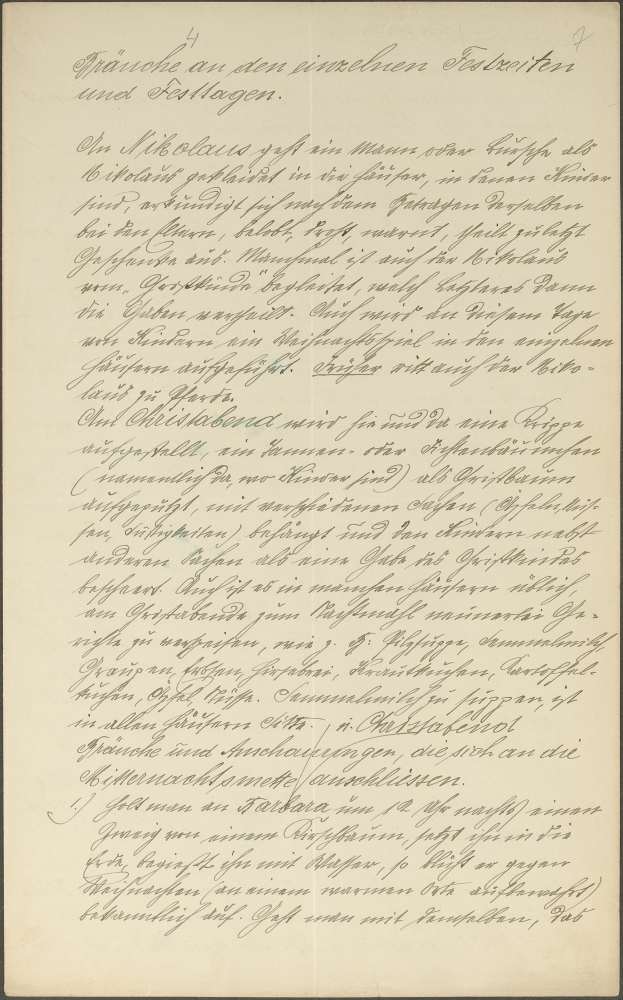 4 7
Bräuche an den einzelnen Festzeiten
und Festtagen.
An Nikolaus geht ein Mann oder Bursche als
Nikolaus gekleidet in die Häuser, in denen Kinder
sind, erkundigt sich nach dem Betragen derselben
bei den Eltern, belobt, droht, warnt, theilt zuletzt
Geschenke aus. Manchmal ist auch der Nikolaus
vom "Christkinde" begleitet, welch Letzteres dann
die Gaben vertheilt. Auch wird an diesem Tage
von Kindern ein Weihnachtsspiel in den einzelnen
Häusern aufgeführt. Früher ritt auch der Niko-
laus zu Pferde.
Am Christabend wird hie und da eine Krippe
aufgestellt, ein Tannen- oder Fichtenbäumchen
(namentlich da, wo Kinder sind) als Christbaum
aufgeputzt, mit verschiedenen Sachen (Äpfeln, Nüs-
sen, Süßigkeiten) behängt und den Kindern nebst
anderen Sachen als eine Gabe des Christkindes
bescheert. Auch ist es in manchen Häusern üblich,
am Christabende zum Nachtmahl neunerlei Ge-
richte zu verspeisen, wie z. B: Pilzsuppe, Semmelmilch,
Graupen, Erbsen, Hirsebrei, Krautkuchen, Kartoffel-
kuchen, Äpfel, Nüsse. Semmelmilch zu suppen, ist
in allen Häusern Sitte.
Bräuche und Anschauungen, die sich an die
Mitternachtsmette anschliessen.
1.) Holt man an Barbara um 12 Uhr nachts einen
Zweig von einem Kirschbaum, setzt ihn in die
Erde, begießt ihn mit Wasser, so blüht er gegen
Weihnachten (an einem warmen Orte aufbewahrt)
bekanntlich auf. Geht man mit demselben, das